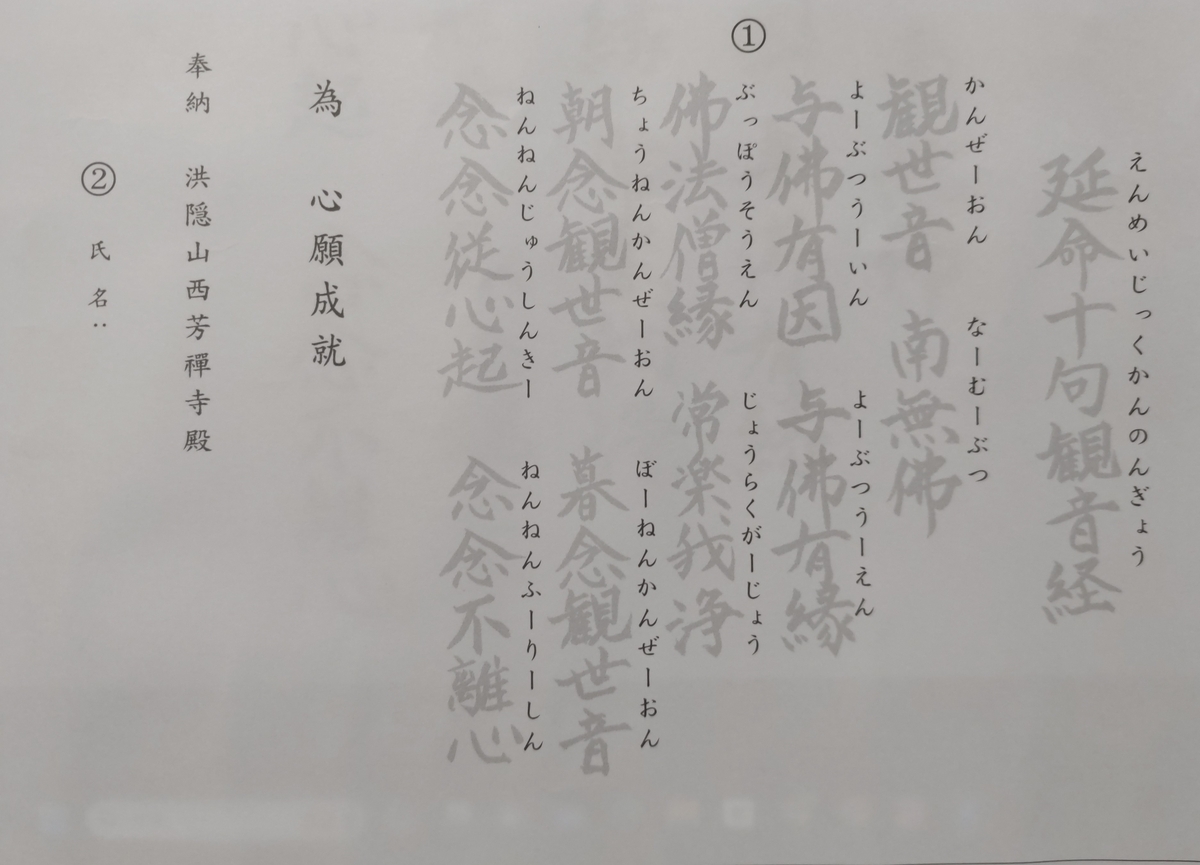 えんめいじっくかんのんぎょう
延命十句観音経
かんぜーおん　なーむーぶつ
観世音　南無佛
よーぶつうーいん　よーぶつうーえん
与佛有因　与佛有縁
①
ぶっぽうそうえん　じょうらくがーじょう
佛法僧縁　常楽我浄
ちょうねんかんぜーおん　ぼーねんかんぜーおん
朝念観世音　暮念観世音
ねんねんじゅうしんきー　ねんねんふーりーしん
念念従心起　念念不離心
為　心願成就
奉納　洪隠山西芳禪寺殿
②　氏名：